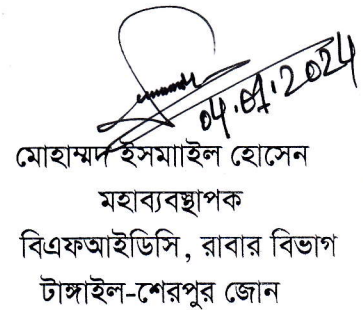 04.07.2024
মোহাম্মদ ইসমাাইল হোসেন
মহাব্যবস্থাপক
বিএফআইডিসি, রাবার বিভাগ
টাঙ্গাইল-শেরপুর জোন